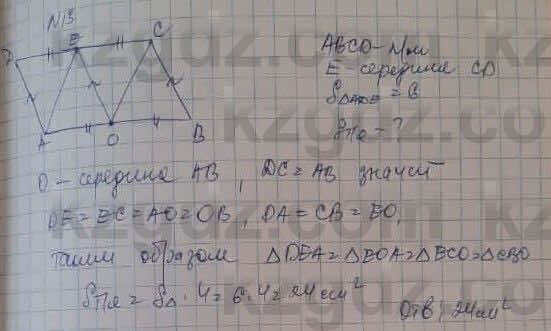 N13
D E C
A O B
ABCD – п/м
E – середина CD
S△ADE = 6
Sпар – ?
O – середина AB, DC = AB значит
DE = EC = AO = OB, DA = CB = EO,
таким образом △DEA = △EOA = △ECO = △CBO
S = S△ · 4 = 6 · 4 = 24 см²
Отв: 24 см²
kzguz.com